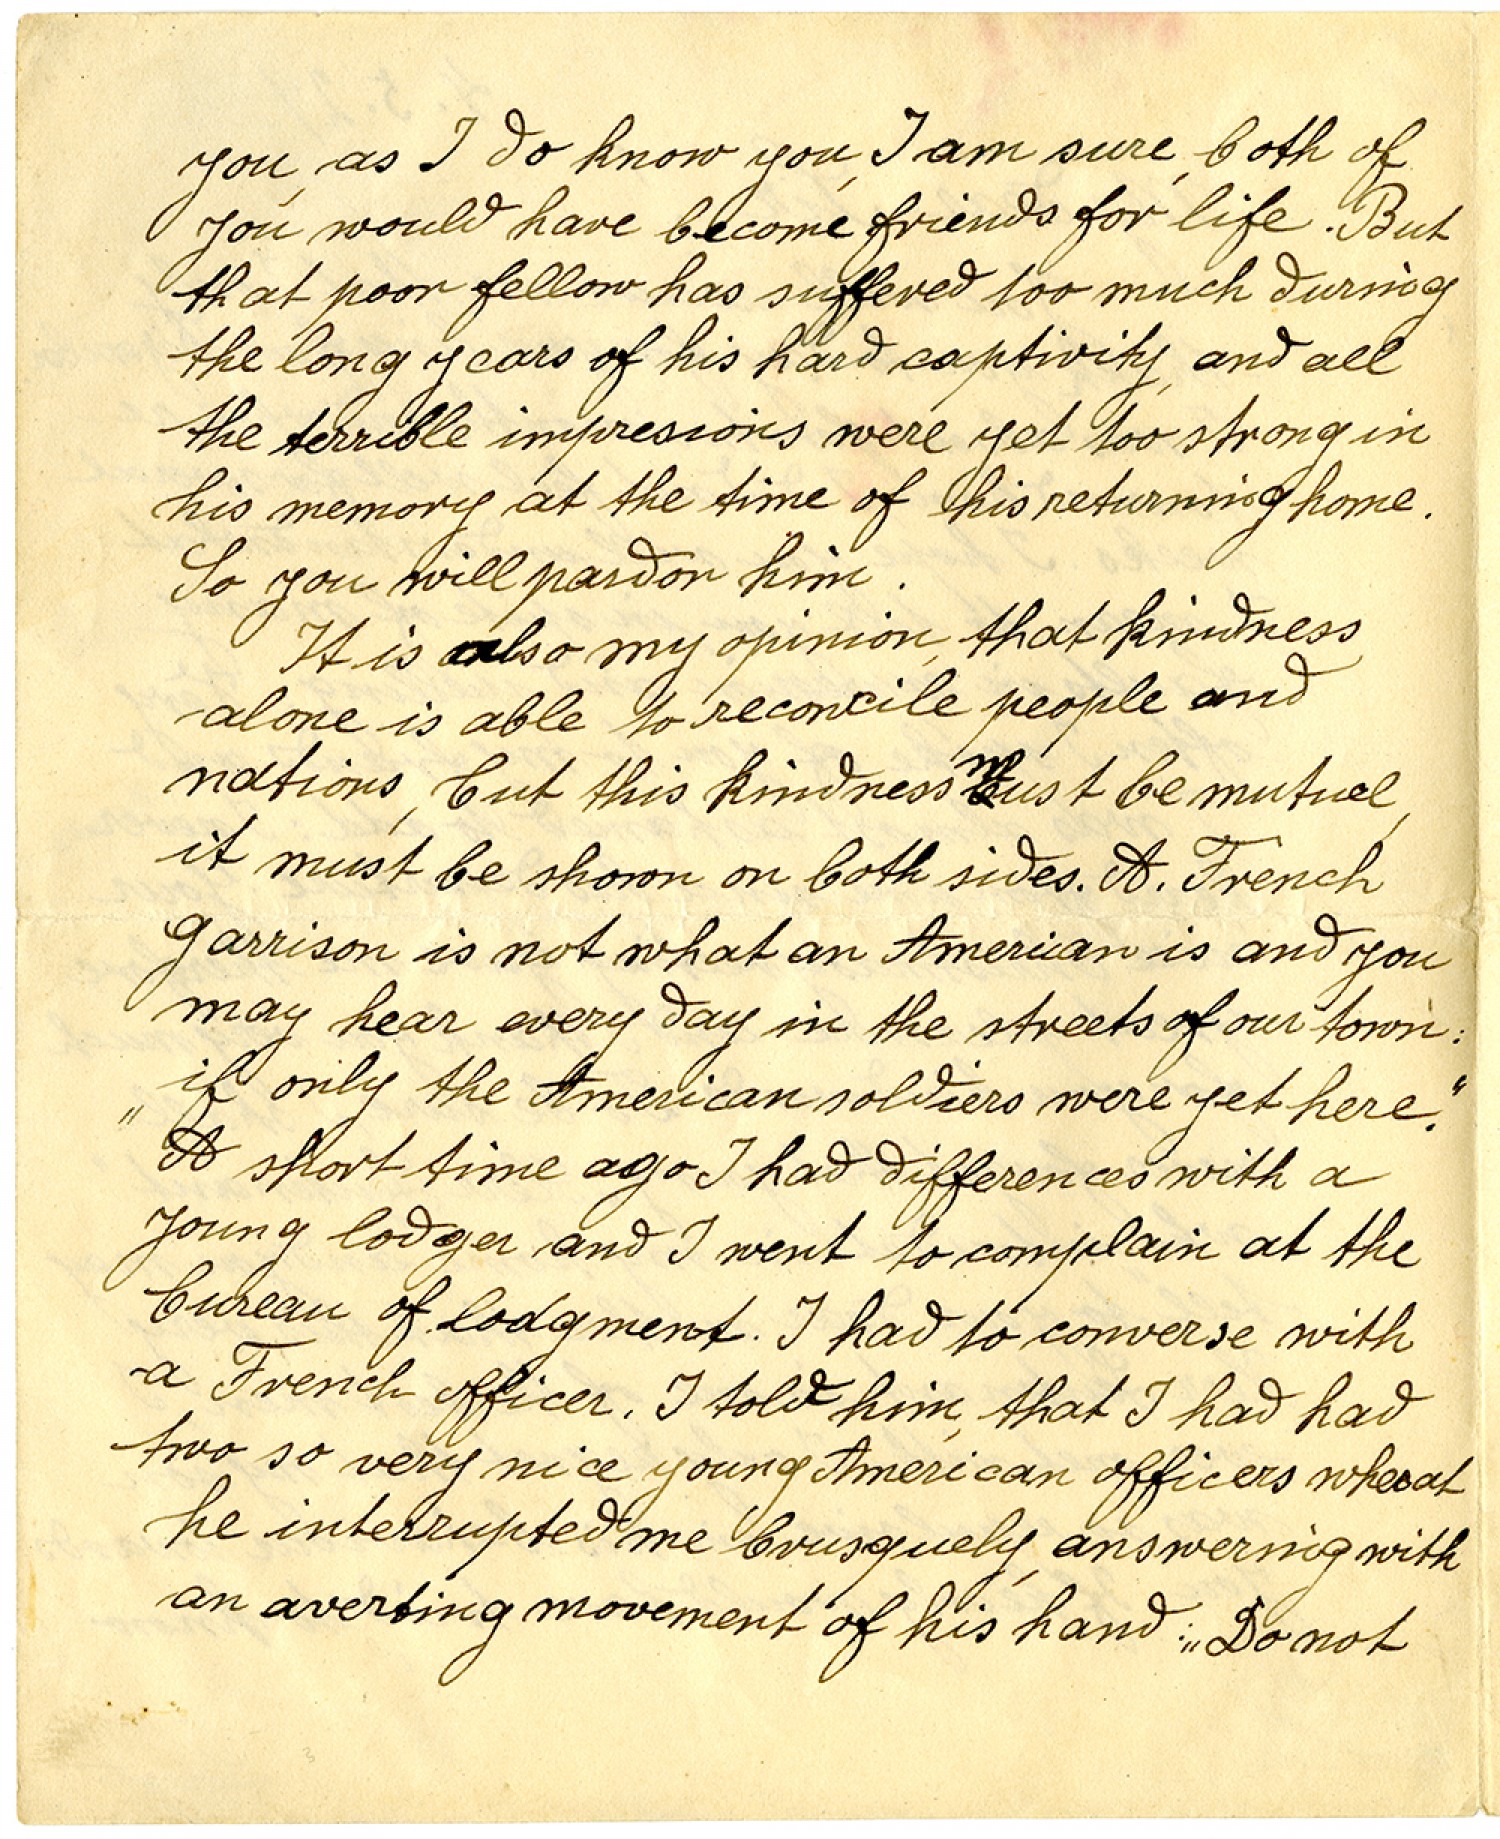 you, as I do know you, I am sure, both of
you would have become friends for life. But
that poor fellow has suffered too much during
the long years of his hard captivity, and all
the terrible impresions were yet too strong in
his memory at the time of his returning home.
So you will pardon him.
It is also my opinion, that kindness
alone is able to reconcile people and
nations, but this kindness must be mutual,
it must be shown on both sides. A. French
garrison is not what an American is and you
may hear every day in the streets of our town:
„if only the American soldiers were yet here.“
A short time ago I had differences with a
young lodger and I went to complain at the
bureau of lodgment. I had to converse with
a French officer. I told him, that I had had
two so very nice young American officers whereat
he interrupted me brusquely, answering with
an averting movement of his hand: „Do not
3